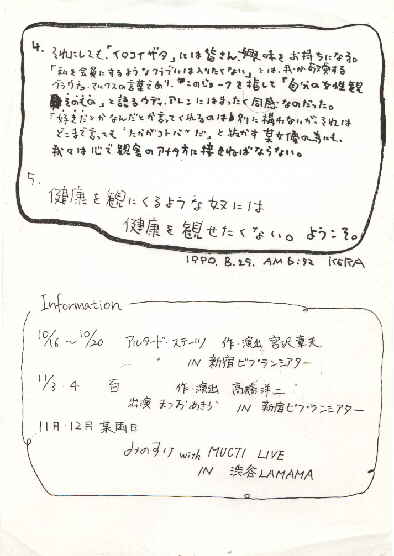 4. それにしても、「イロコイザタ」には皆さん、興味をお持ちになる。
「私を会員にするようなクラブには入りたくない」とは、我が敬愛する
グラウチョ・マルクスの言葉であり、このジョークを指して「自分の女性観
そのもの」と語るウディ・アレンにはまったく同感なのだった。
「好きだとかなんだとか言ってくれるのは別に構わないが、それは
どこまで言っても"たかがコトバ"だ」と抜かす某女優の為にも、
我々は心で観念のアチラ方に接さねばならない。
5.
健康を観にくるような奴には
健康を観せたくない。ようこそ。
1990. 8. 29. AM 6:32 KERA
Information
10/16 〜 10/20 アルタード・ステーツ 作・演出 宮沢章夫
IN 新宿シアタートップス
11/3・4 作・演出 高橋洋二
出演 まつおあきら IN 新宿
11月・12月 某両日
みのすけ with MUCTI LIVE
IN 渋谷LAMAMA